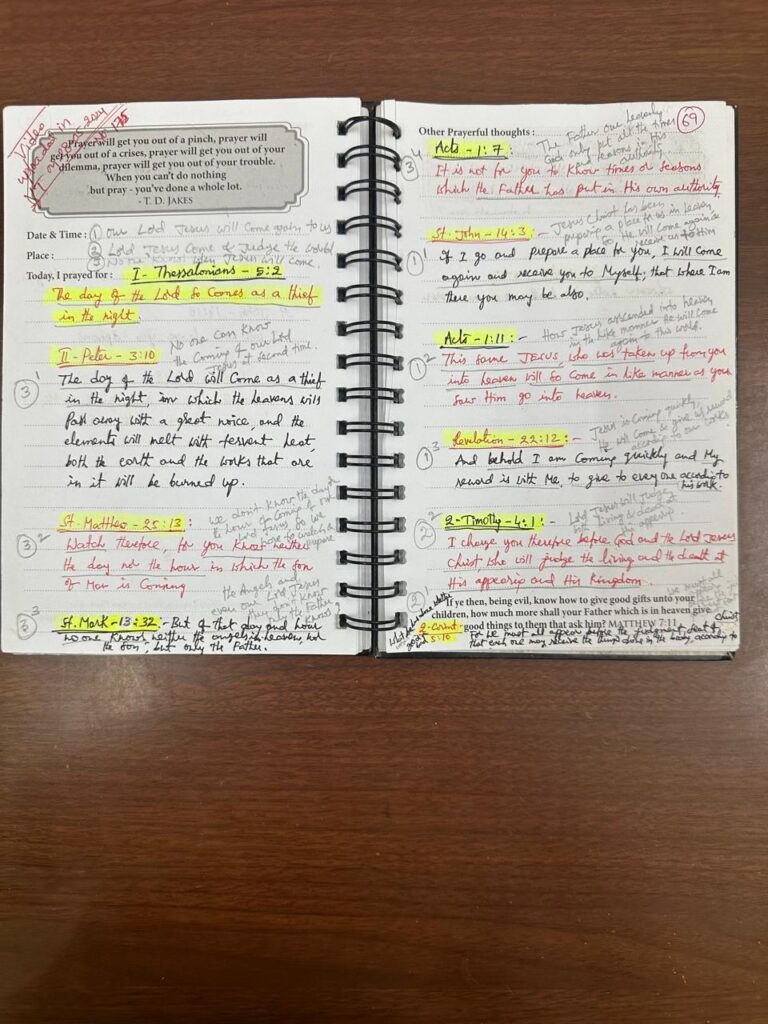 Video
uploaded in
No 175
Prayer will get you out of a pinch, prayer will
get you out of a crises, prayer will get you out of your
dilemma, prayer will get you out of your trouble.
When you can't do nothing
but pray - you've done a whole lot.
- T. D. JAKES
Date & Time : ① Our Lord Jesus will come again to us
Place : ② Lord Jesus Come & Judge the World
③ No one knows when Jesus will come.
Today, I prayed for : I - Thessalonians - 5:2
The day of the Lord So Comes as a thief
in the night.
No one can know
the Coming of our Lord
Jesus at second time.
II - Peter - 3:10
③ 1 The day of the Lord will Come as a thief
in the night in which the heavens will
Pass away with a great noice, and the
elements will melt with fervent heat,
both the earth and the works that are
in it will be burned up.
St. Matthew - 25:13 :
we don't know the day &
the hour
③ 2 Watch therefore, for you know neither
the day nor the hour in which the son
of Man is Coming
The Angels and
even our Lord Jesus
they don't know
the Father
knows
③ 3 St. Mark - 13:32 :- But of that day and hour
no one knows, neither the angels in heaven, nor
the son, but only the Father.
69
Other Prayerful thoughts :
The Father our heavenly
God only put all the times
and reasons in His
authority
Acts - 1:7 :
③ 4 It is not for you to know times or seasons
which the Father has put in His own authority
St. John - 14:3 :-
Jesus Christ has been
preparing a place for us in heaven
So He will come again &
receive us to Him
① 1 If I go and prepare a place for you, I will come
again and receive you to Myself; that where I am
there you may be also.
Acts - 1:11 :-
How Jesus ascended into heaven
in the like manner He will come
again to this world.
① 2 This same Jesus, who was taken up from you
into heaven will so come in like manner as you
saw Him go into heaven.
Revelation - 22:12 :-
Jesus is Coming quickly
He will come & give us reward
according to our works
① 3 And behold I am Coming quickly and My
reward is with Me, to give to every one according to
his work.
2 - Timothy - 4:1 :-
Lord Jesus will judge
the living & dead at
His appearing
② 2 I charge you therefore before God and the Lord Jesus
Christ, who will judge the living and the death at
His appearip and His Kingdom.
② 1 If ye then, being evil, know how to give good gifts unto your
children, how much more shall your Father which is in heaven give
good things to them that ask him? MATTHEW 7:11
2 - Corint - 5:10 For we must all appear before the judgment seat of Christ
that each one may receive the things done in the body, according to